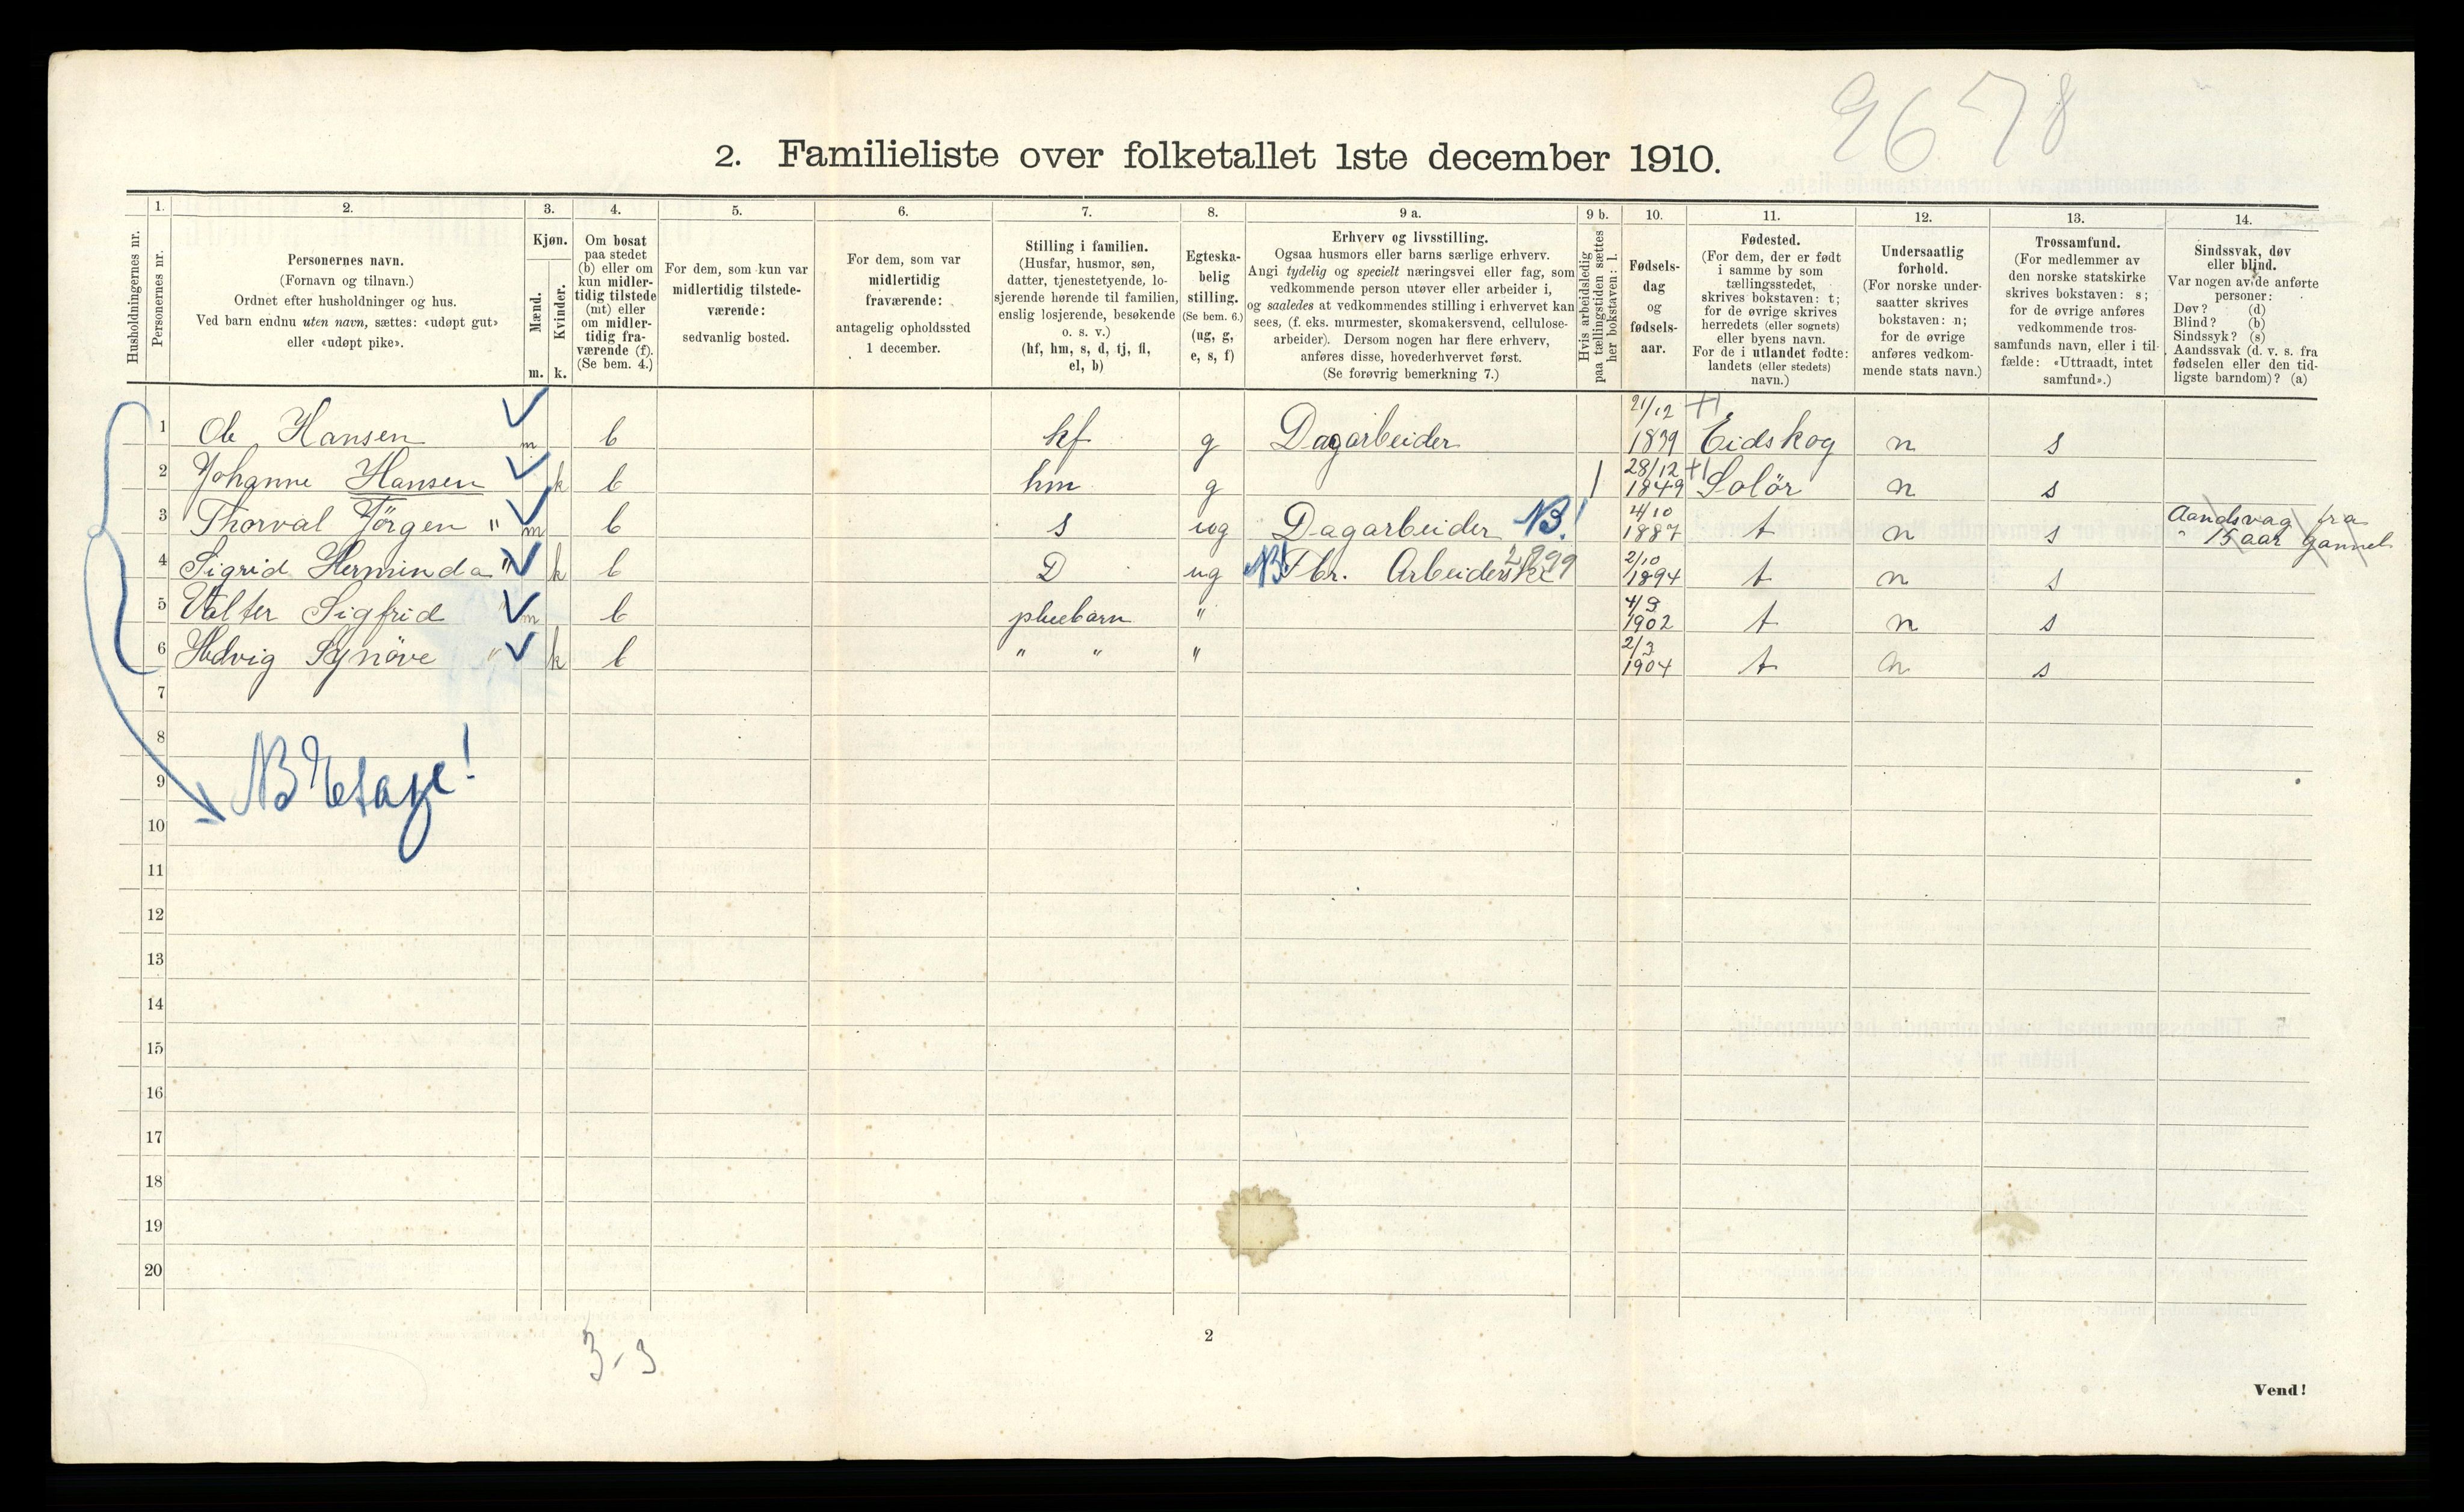 9678
2. Familieliste over folketallet 1ste december 1910.
Husholdningernes nr.
1. Personernes nr.
2. Personernes navn.
(Fornavn og tilnavn.)
Ordnet efter husholdninger og hus.
Ved barn endnu uten navn, sættes: «udøpt gut»
eller «udøpt pike».
3. Kjøn.
Mænd. m.
Kvinder. k.
4. Om bosat
paa stedet
(b) eller om
kun midler-
tidig tilstede
(mt) eller
om midler-
tidig fra-
værende (f).
(Se bem. 4.)
5. For dem, som kun var
midlertidig tilstede-
værende:
sedvanlig bosted.
6. For dem, som var
midlertidig
fraværende:
antagelig opholdssted
1 december.
7. Stilling i familien.
(Husfar, husmor, søn,
datter, tjenestetyende, lo-
sjerende hørende til familien,
enslig losjerende, besøkende
o. s. v.)
(hf, hm, s, d, tj, fl,
el, b)
8. Egteska-
belig
stilling.
(Se bem. 6.)
(ug, g,
e, s, f)
9 a. Erhverv og livsstilling.
Ogsaa husmors eller barns særlige erhverv.
Angi tydelig og specielt næringsvei eller fag, som
vedkommende person utøver eller arbeider i,
og saaledes at vedkommendes stilling i erhvervet kan
sees, (f. eks. murmester, skomakersvend, cellulose-
arbeider). Dersom nogen har flere erhverv,
anføres disse, hovederhvervet først.
(Se forøvrig bemerkning 7.)
9 b. Hvis arbeidsledig
paa tællingstiden sættes
her bokstaven: l.
10. Fødsels-
dag
og
fødsels-
aar.
11. Fødested.
(For dem, der er født
i samme by som
tællingsstedet,
skrives bokstaven: t;
for de øvrige skrives
herredets (eller sognets)
eller byens navn.
For de i utlandet fødte:
landets (eller stedets)
navn.)
12. Undersaatlig
forhold.
(For norske under-
saatter skrives
bokstaven: n;
for de øvrige
anføres vedkom-
mende stats navn.)
13. Trossamfund.
(For medlemmer av
den norske statskirke
skrives bokstaven: s;
for de øvrige anføres
vedkommende tros-
samfunds navn, eller i til-
fælde: «Uttraadt, intet
samfund».)
14. Sindssvak, døv
eller blind.
Var nogen av de anførte
personer:
Døv? (d)
Blind? (b)
Sindssyk? (s)
Aandssvak (d. v. s. fra
fødselen eller den tid-
ligste barndom)? (a)
1 Ole Hansen m b hf g Dagarbeider 21/12 1839 Eidskog n s
2 Johanne Hansen k b hm g l 28/12 1849 Solör n s
3 Thorval Jörgen " m b s ug Dagarbeider NB! 4/10 1887 t n s Aandsvag fra
15 aar gammel
4 Sigrid Herminda " k b D ug NB! Fbr. Arbeiderske 2899 2/10 1894 t n s
5 Valter Sigfrid " m b pleebarn " 4/9 1902 t n s
6 Hedvig Synöve " k b " " " 2/3 1904 t n s
7
8
NB Etage!
9
10
11
12
13
14
15
16
17
18
19
20
3-3
2
Vend!